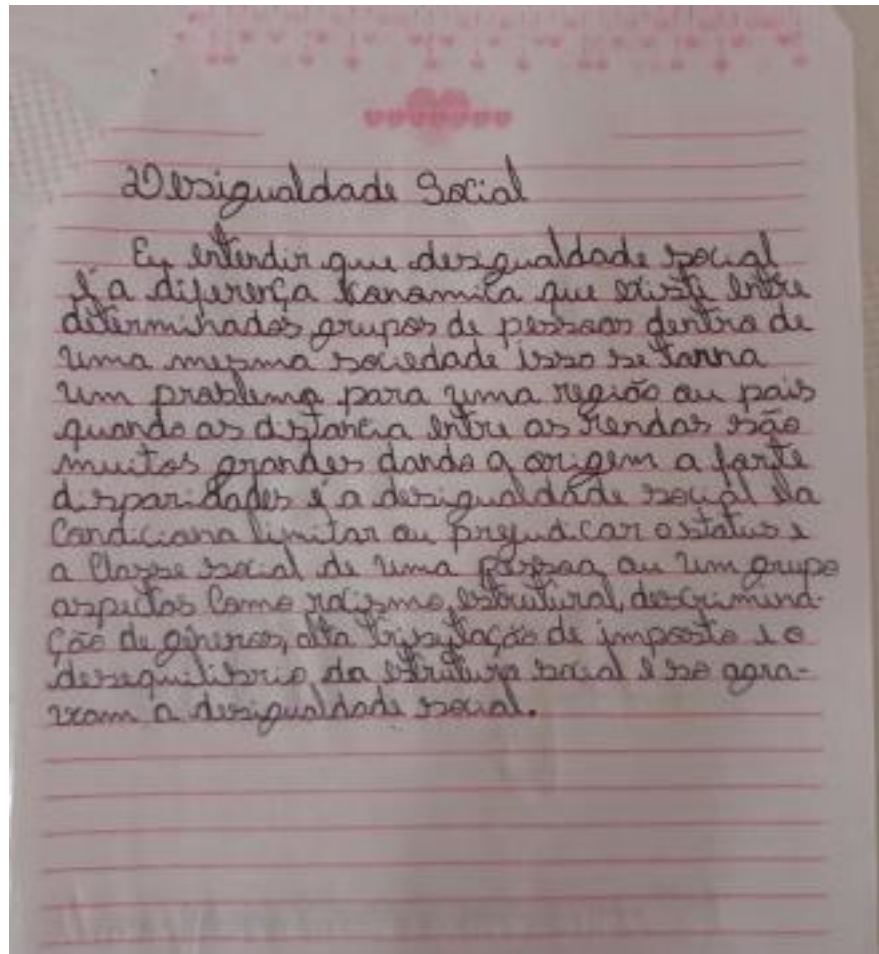 Desigualdade Social
Eu entendir que desigualdade social
é a diferença econômica que existe entre
determinados grupos de pessoas dentro de
uma mesma sociedade isso se torna
um problema para uma região ou país
quando as distancia entre as rendas são
muitos grandes dando a origem a forte
disparidades e a desigualdade social ela
Condiciona limitar ou prejudicar o status e
a Classe social de uma pessoa ou um grupo
aspectos Como racismo estrutural, descrimina-
ção de gêneros, alta tributação de imposto e o
desequilibrio da estrutura social é so agra-
vam a desigualdade social.